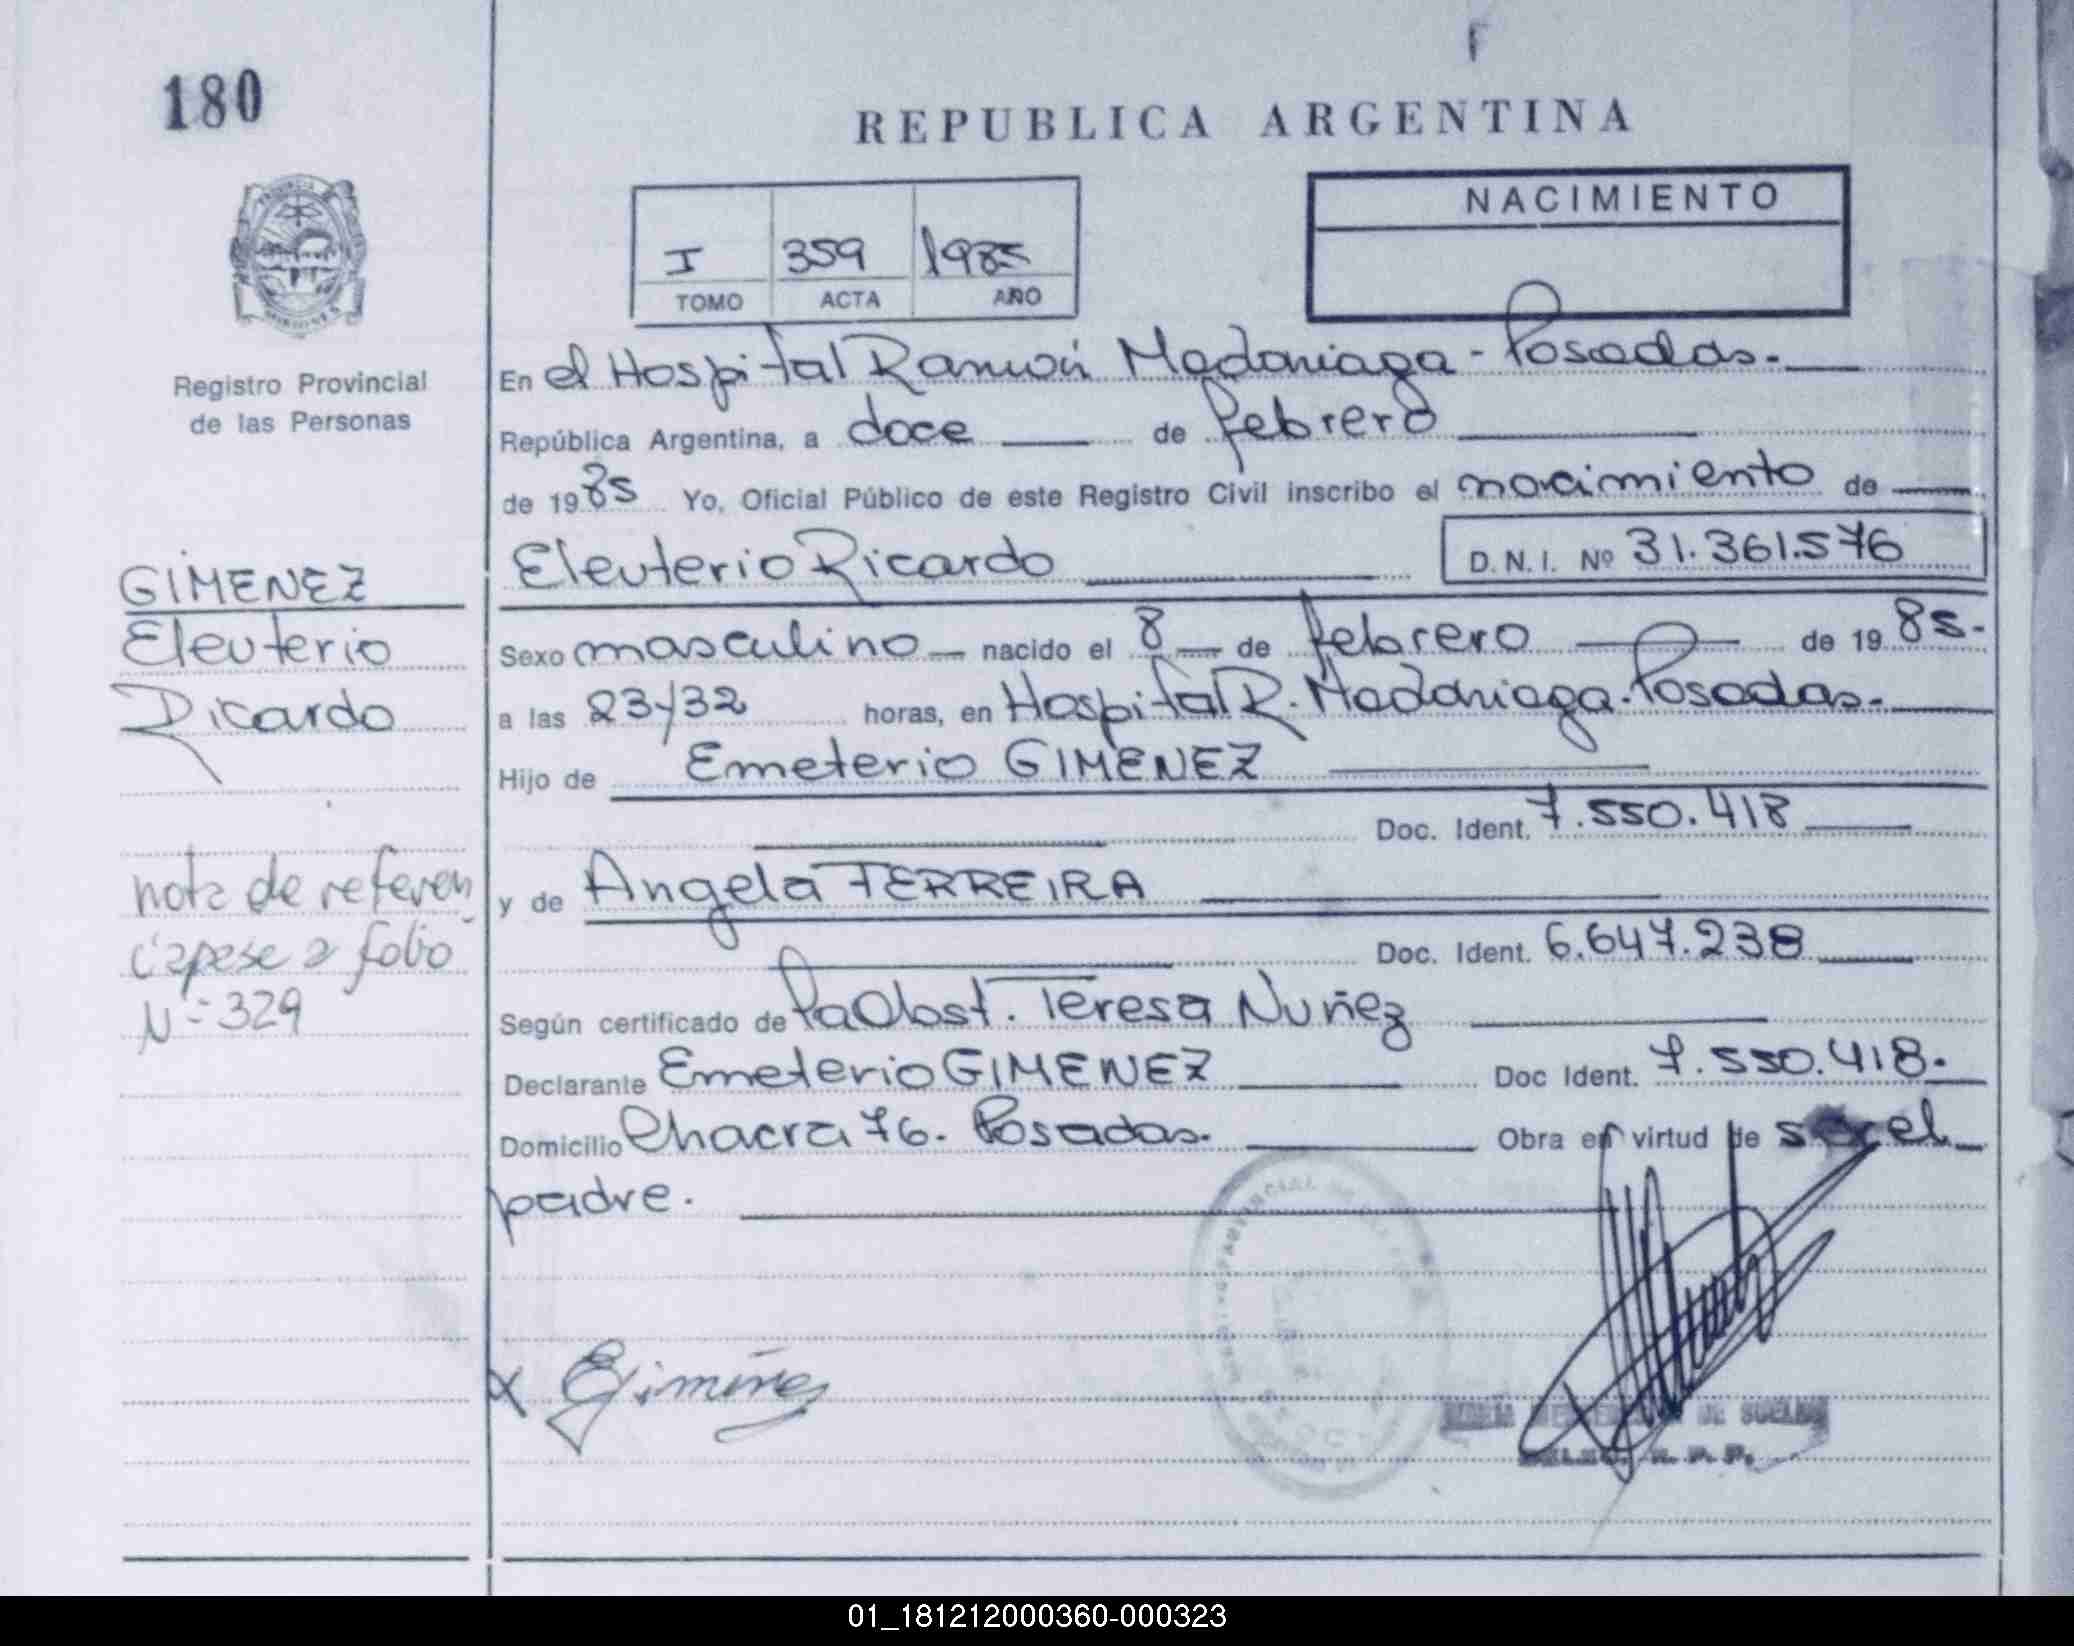 180
REPUBLICA ARGENTINA
NACIMIENTO
I 359 1985
TOMO ACTA AÑO
Registro Provincial
de las Personas
En el Hospital Ramón Madariaga - Posadas.
República Argentina, a doce de febrero
de 1985 Yo, Oficial Público de este Registro Civil inscribo el nacimiento de
Eleuterio Ricardo D.N.I. Nº 31.361.576
GIMENEZ
Eleuterio
Ricardo
Sexo masculino nacido el 8 de febrero de 1985.
a las 23/32 horas, en Hospital R. Madariaga. Posadas.
Hijo de Emeterio GIMENEZ
Doc. Ident. 7.550.418
y de Angela FERREIRA
Doc. Ident. 6.647.238
nota de referen
cia pase a folio
Nº 329
Según certificado de Pa Obst. Teresa Nuñez
Declarante Emeterio GIMENEZ Doc Ident. 7.550.418.
Domicilio Chacra 76. Posadas. Obra en virtud de ser el
padre.
x EGimenez
DE
R. P. P.
01_181212000360-000323